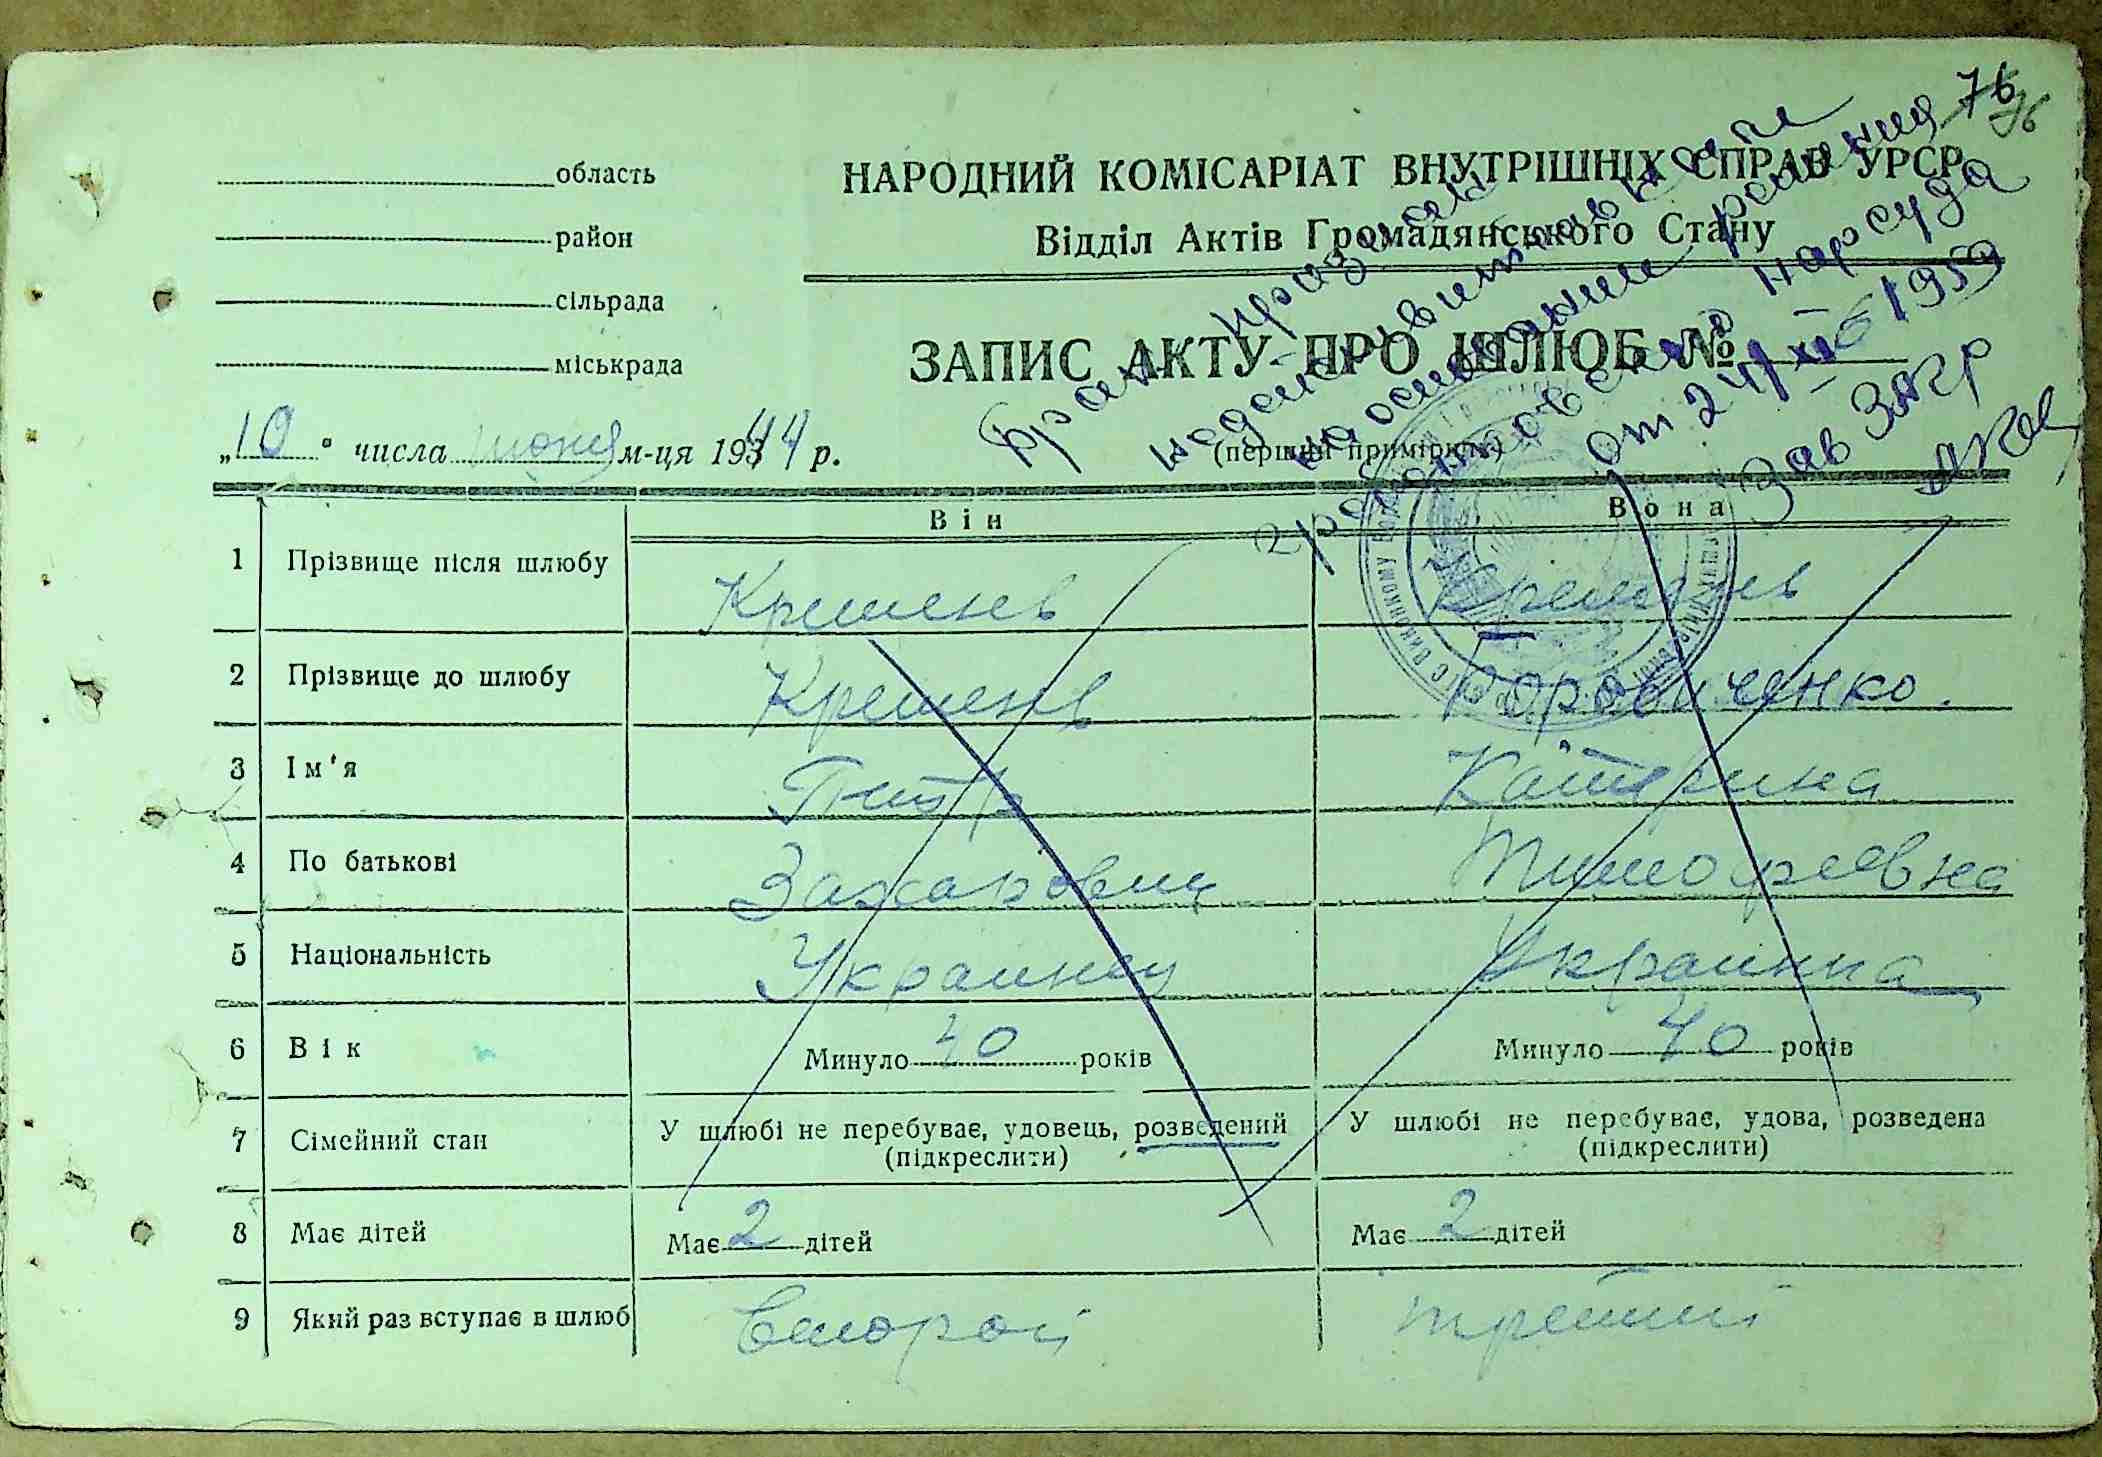 76
76
область
район
сільрада
міськрада
НАРОДНИЙ КОМІСАРІАТ ВНУТРІШНІХ СПРАВ УРСР
Відділ Актів Громадянського Стану
ЗАПИС АКТУ ПРО ШЛЮБ №
(перший примірник)
„10" числа июня м-ця 1944 р.
Брак признать
недействительным
на основании решения
нарсуда
от 24/XII 1959
Зав ЗАГС
Він Вона
1 Прізвище після шлюбу Кремень Кремень
2 Прізвище до шлюбу Кремень
3 Ім'я Петр Катерина
4 По батькові Захарович Тимофеевна
5 Національність Украинец Украинка
6 Вік Минуло 40 років Минуло 40 років
7 Сімейний стан У шлюбі не перебуває, удовець, розведений (підкреслити) У шлюбі не перебуває, удова, розведена (підкреслити)
8 Має дітей Має 2 дітей Має 2 дітей
9 Який раз вступає в шлюб Второй третий